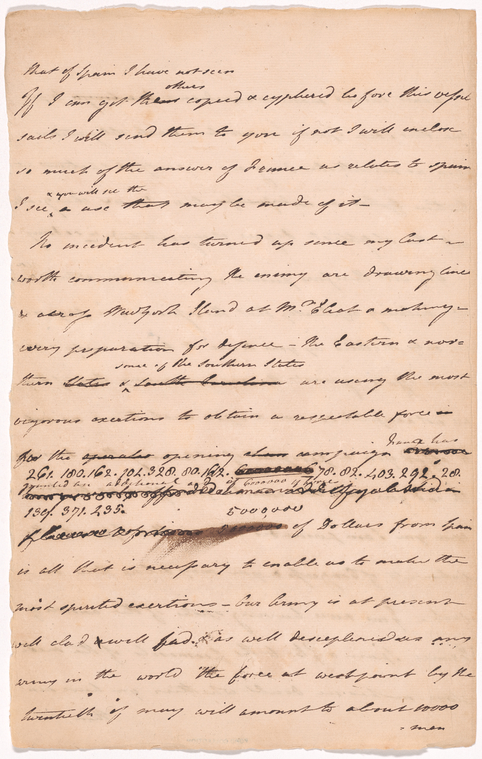 that of Spain I have not seen
others
If I can get them copied & cyphered before this vessel
sails I will send them to you if not I will inclose
so much of the answer of France as relates to Spain
& you will see the
I see a use that may be made of it –
No incident has turned up since my last –
worth communicating the enemy are drawing lines
across Newyork Island at Mr. Eliot & making –
every preparation for defence – the Eastern & nor=
some of the Southern States
thern States & South Carolina are using the most
vigorous exertions to obtain a respectable force in
France has
for the operator opening campaign
261. 180. 162. 702. 328. 80. 162. 78. 82. 403. 292. 28.
granted an additional aid of 6000000
139. 371. 235. 5000000
of Dollars from Spain
is all that is necessary to enable us to make the
most spirited exertions – Our Army is at present
well clad & well fed. & as well desceplined as any
army in the world the force at westpoint by the
twentieth of may will amount to about 10000
– men